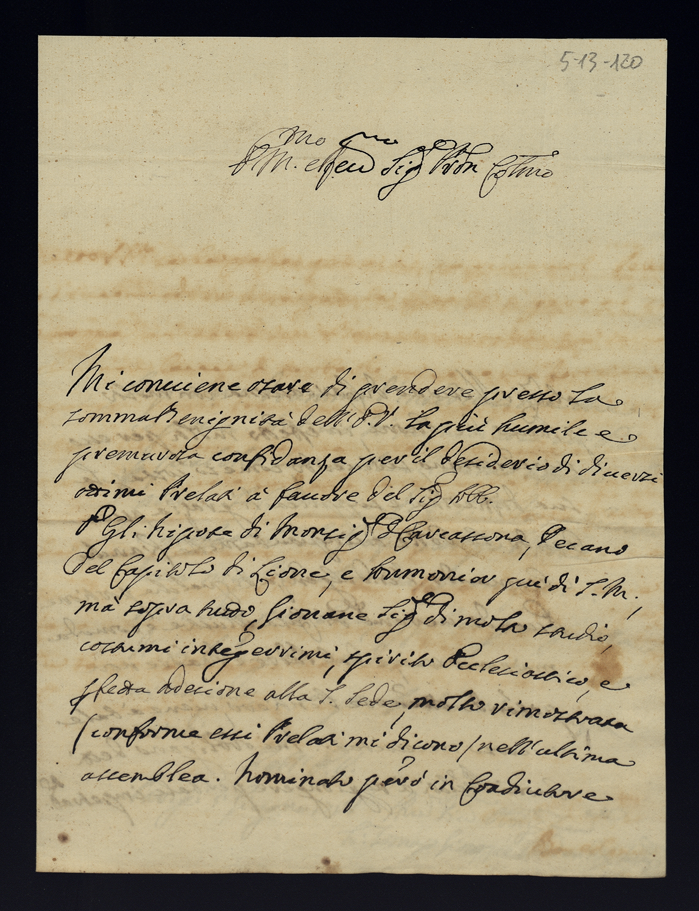 5-13-120
Mi conviene osare di prendere presso la
somma Benignità dell' P.V. la più humile e
premurosa confidanza per il desiderio di diversi
ottimi Prelati à favore del Sig
Nipote di Monsig Carcassona, Decano
del Capitolo di Lione, e qui di S. M.,
mà sopra tutto, Giovane Sig di molto studio,
costumi integerrimi, spirito Ecclesiastico, e
adesione alla S. Sede, molto rimostrata
/conforme essi Prelati mi dicono/ nell' ultima
assemblea. Nominato però in Coadiutore